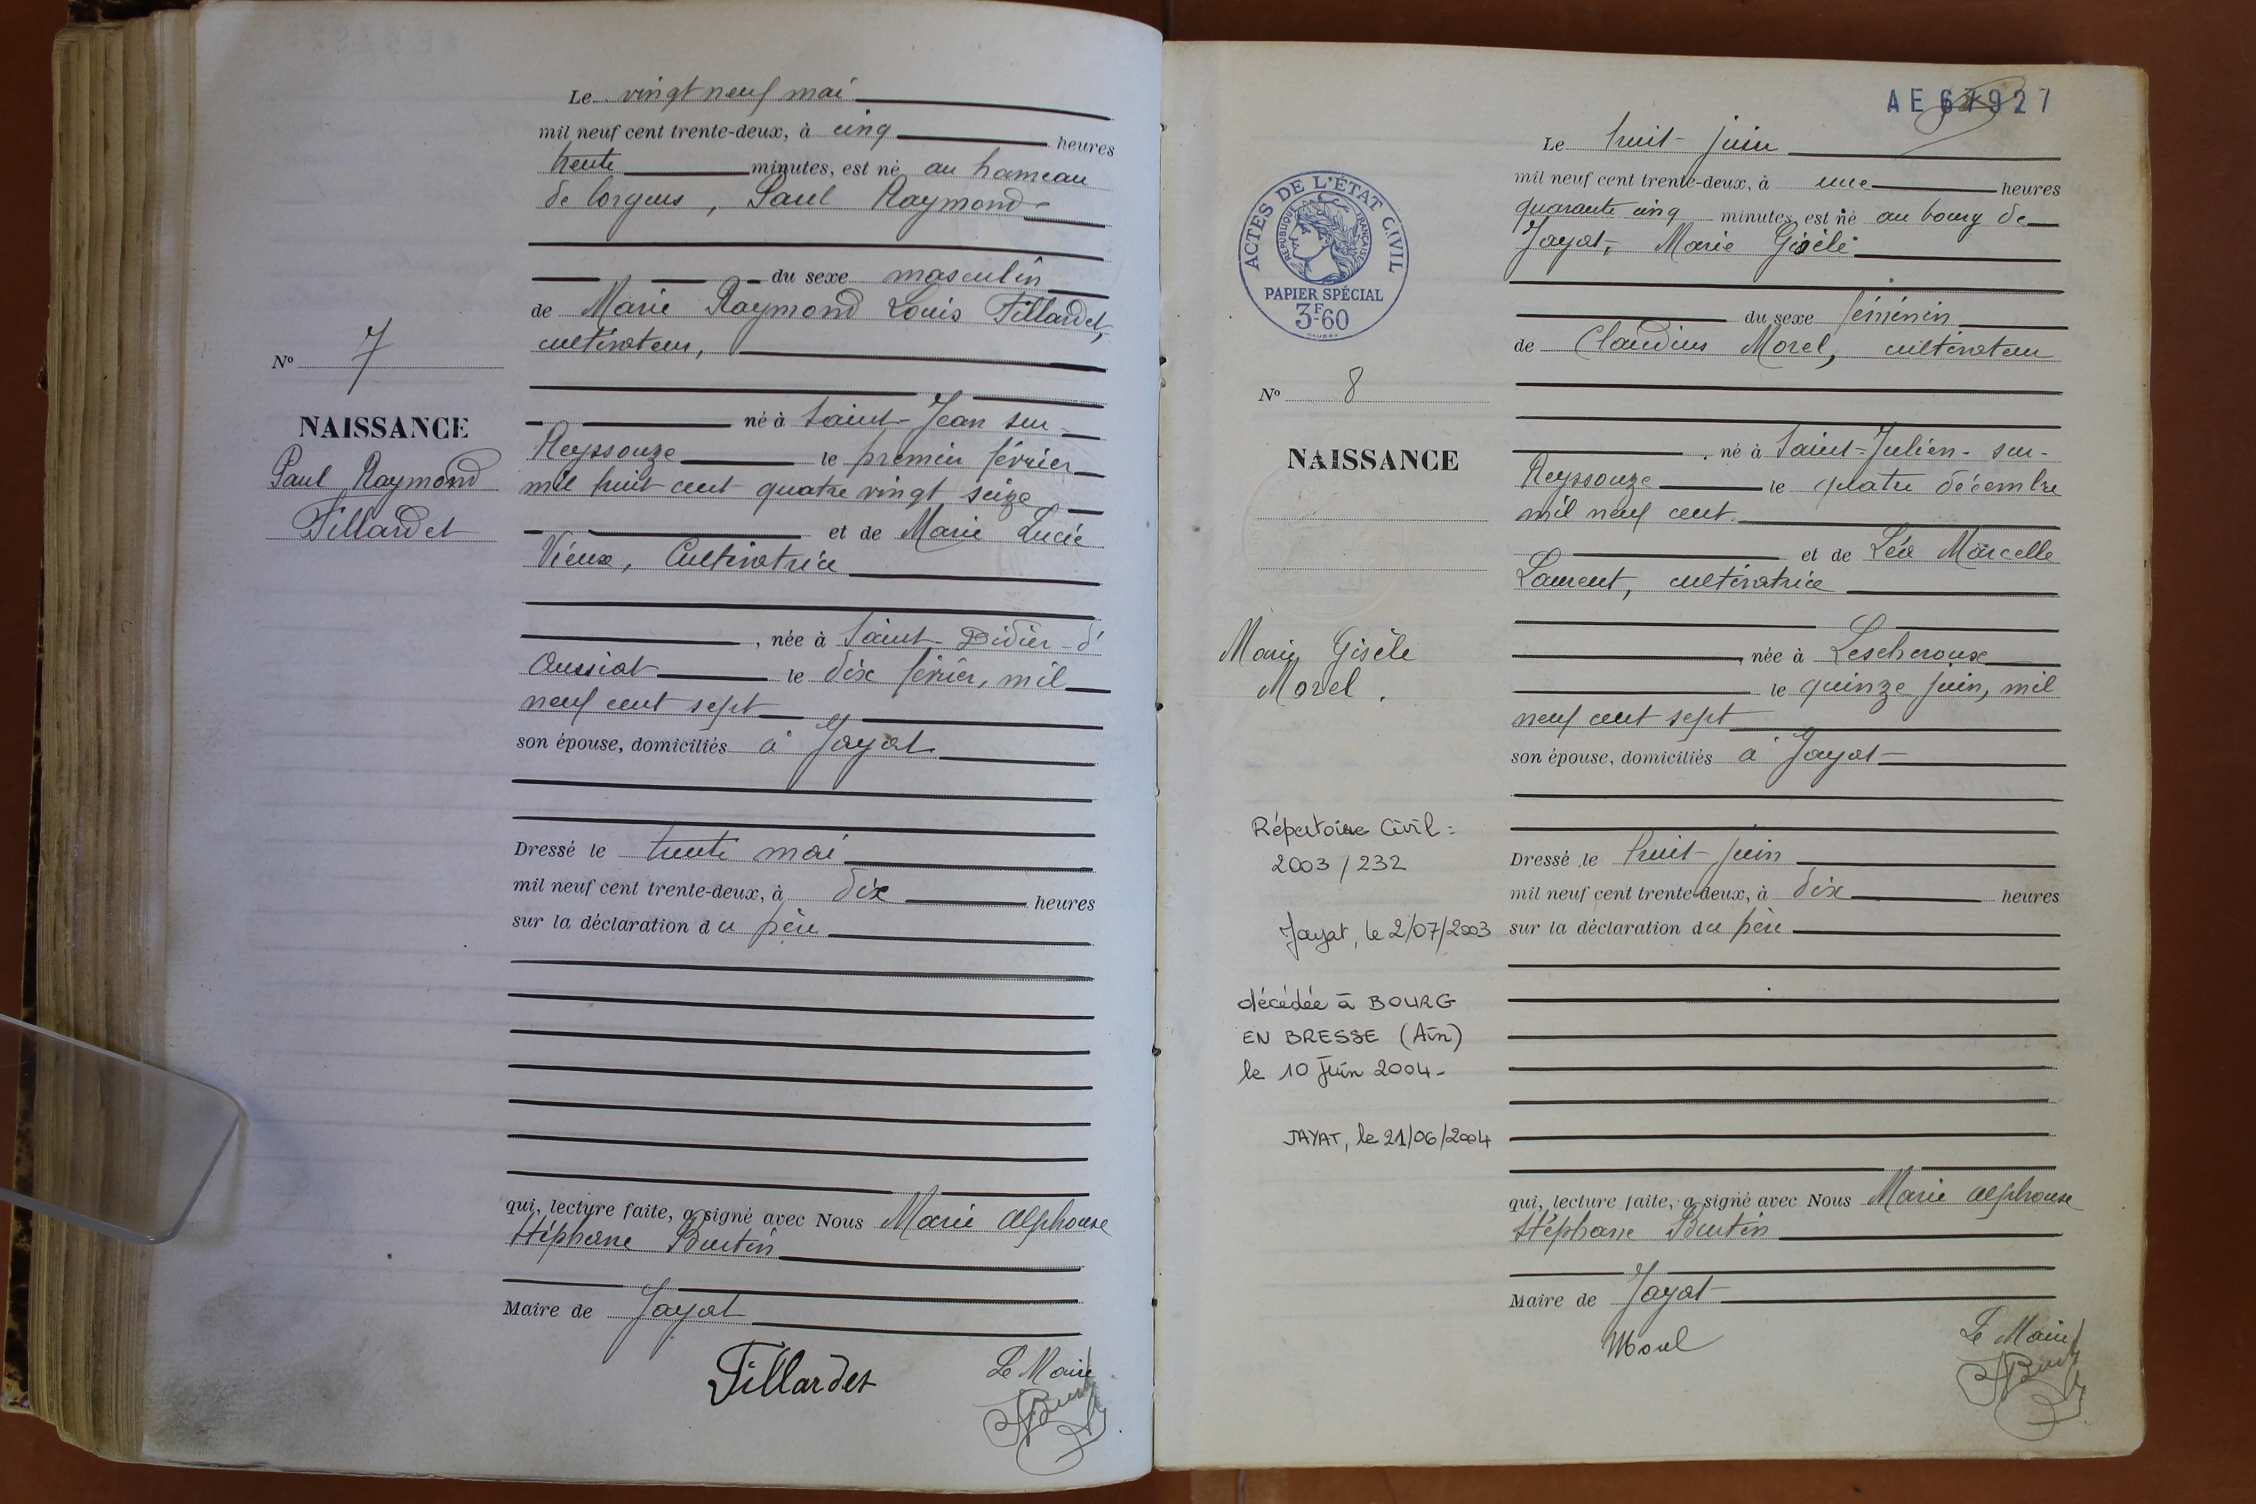 Le vingt neuf mai
mil neuf cent trente-deux, à cinq heures
trente minutes, est né au hameau
de Corgens, Paul Raymond
du sexe masculin
de Marie Raymond Louis Tillardet,
cultivateur,
né à Saint-Jean sur
Reyssouze le premier février
mil huit cent quatre vingt seize
et de Marie Lucie
Vieux, Cultivatrice
, née à Saint-Didier-d'
Aussiat le dix février, mil
neuf cent sept
son épouse, domiciliés à Jayat
Dressé le trente mai
mil neuf cent trente-deux, à dix heures
sur la déclaration du père
qui, lecture faite, a signé avec Nous Marie Alphonse
Stéphane Burtin
Maire de Jayat
Tillardet
Le Maire
Nº 7
NAISSANCE
Paul Raymond
Tillardet
AE 67927
ACTES DE L'ÉTAT CIVIL
RÉPUBLIQUE FRANÇAISE
PAPIER SPÉCIAL
3F60
Nº 8
NAISSANCE
Marie Gisèle
Morel.
Répertoire Civil :
2003 / 232
Jayat, le 2/07/2003
décédée à BOURG
EN BRESSE (Ain)
le 10 Juin 2004-
JAYAT, le 21/06/2004
Le huit juin
mil neuf cent trente-deux, à une heures
quarante cinq minutes, est né au bourg de
Jayat, Marie Gisèle
du sexe féminin
de Claudius Morel, cultivateur
, né à Saint-Julien-sur-
Reyssouze le quatre décembre
mil neuf cent.
et de Léa Marcelle
Laurent, cultivatrice
, née à Lescheroux
le quinze juin, mil
neuf cent sept
son épouse, domiciliés à Jayat
Dressé le huit juin
mil neuf cent trente-deux, à dix heures
sur la déclaration du père
qui, lecture faite, a signé avec Nous Marie Alphonse
Stéphane Burtin
Maire de Jayat
Morel
Le Maire